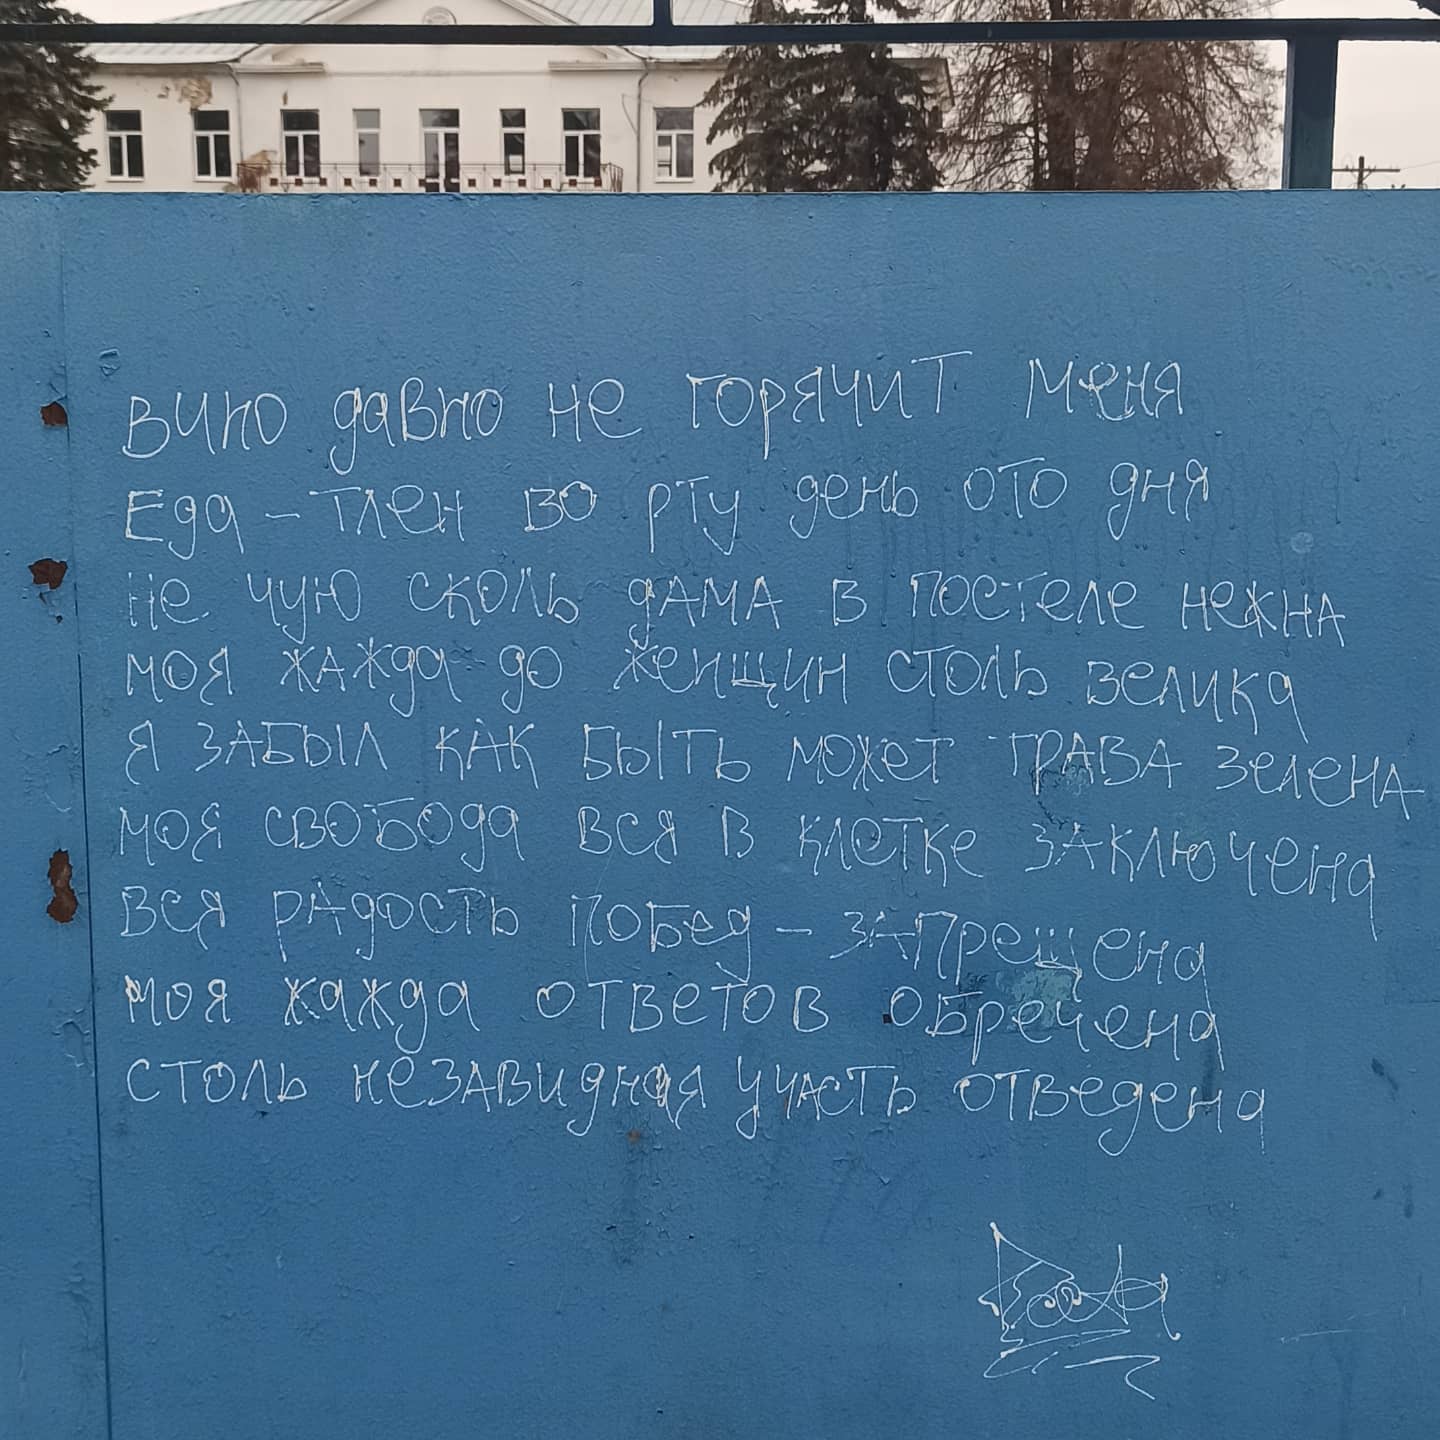 Вино давно не горячит меня
Еда – тлен во рту день ото дня
не чую сколь дама в постеле нежна
моя жажда до женщин столь велика
я забыл как быть может трава зелена
моя свобода вся в клетке заключена
вся радость побед – запрещена
моя жажда ответов обречена
столь незавидная участь отведена